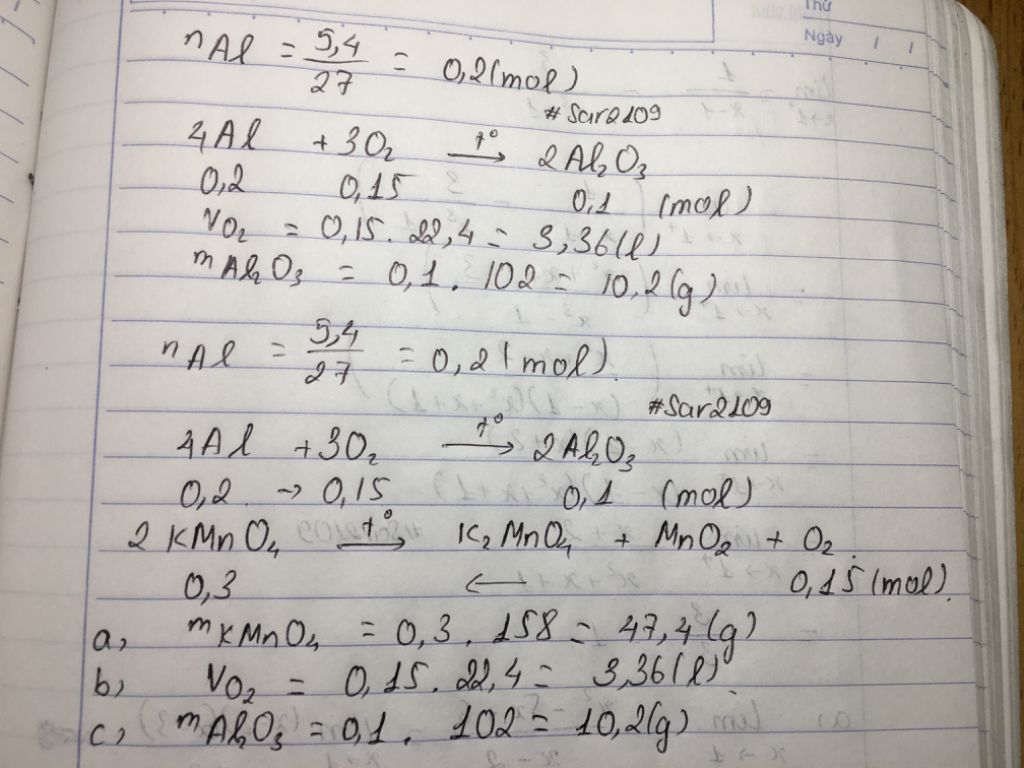 Thứ
Ngày / /
nAl = 5,4/27 = 0,2(mol)
#Sar2109
4Al + 3O₂ —t°→ 2Al₂O₃
0,2 0,15 0,1 (mol)
VO₂ = 0,15 . 22,4 = 3,36(l)
mAl₂O₃ = 0,1 . 102 = 10,2(g)
nAl = 5,4/27 = 0,2(mol).
#Sar2109
4Al + 3O₂ —t°→ 2Al₂O₃
0,2 → 0,15 0,1 (mol)
2KMnO₄ —t°→ K₂MnO₄ + MnO₂ + O₂.
0,3 ← 0,15(mol).
a, mKMnO₄ = 0,3 . 158 = 47,4(g)
b, VO₂ = 0,15 . 22,4 = 3,36(l)
c, mAl₂O₃ = 0,1 . 102 = 10,2(g)